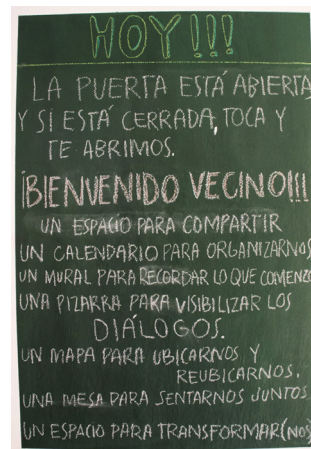 HOY!!!
LA PUERTA ESTÁ ABIERTA
Y SI ESTÁ CERRADA, TOCA Y
TE ABRIMOS.
¡BIENVENIDO VECINO!!!
UN ESPACIO PARA COMPARTIR
UN CALENDARIO PARA ORGANIZARNOS
UN MURAL PARA RECORDAR LO QUE COMENZÓ
UNA PIZARRA PARA VISIBILIZAR LOS
DIÁLOGOS.
UN MAPA PARA UBICARNOS Y
REUBICARNOS.
UNA MESA PARA SENTARNOS JUNTOS
UN ESPACIO PARA TRANSFORMAR(NOS)